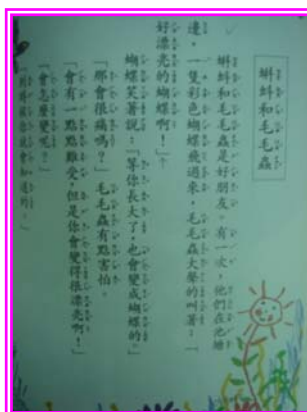 蝌蚪和毛毛蟲
蝌蚪和毛毛蟲是好朋友。有一次,他們在池塘
邊,一隻彩色蝴蝶飛過來,毛毛蟲大聲的叫著:「
好漂亮的蝴蝶啊!」
蝴蝶笑著說:「等你長大了,也會變成蝴蝶的。」
「那會很痛嗎?」毛毛蟲有點害怕。
「會有一點點難受,但是你會變得很漂亮啊!」
「會怎麼變呢?」
「到時候你就會知道的。」